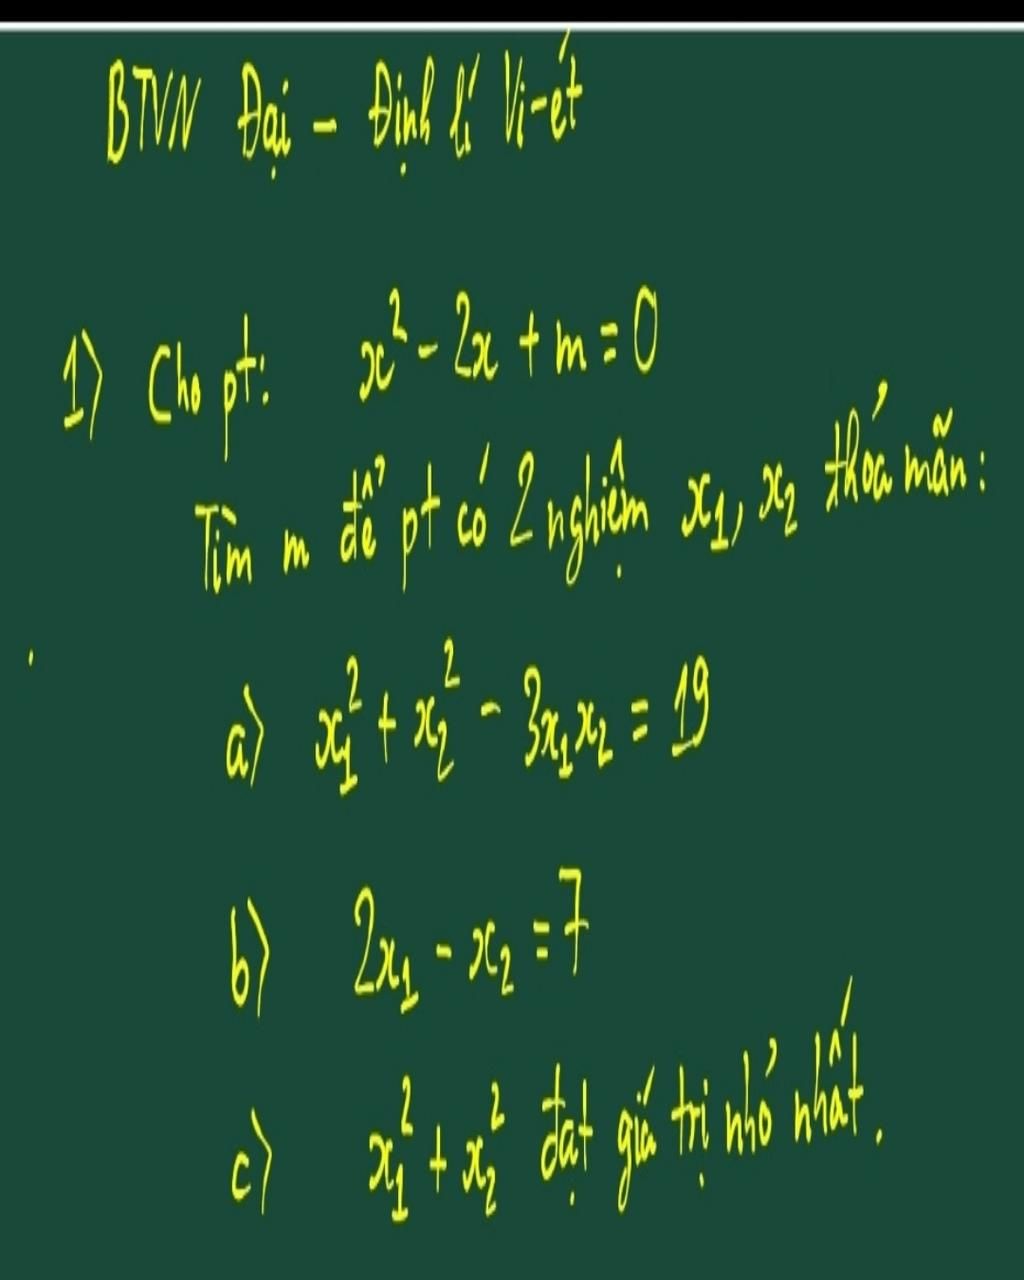 BTVN Đại - Định lí Vi-ét
1) Cho pt: x² - 2x + m = 0
Tìm m để pt có 2 nghiệm x₁, x₂ thỏa mãn:
a) x₁² + x₂² - 3x₁x₂ = 19
b) 2x₁ - x₂ = 7
c) x₁² + x₂² đạt giá trị nhỏ nhất.